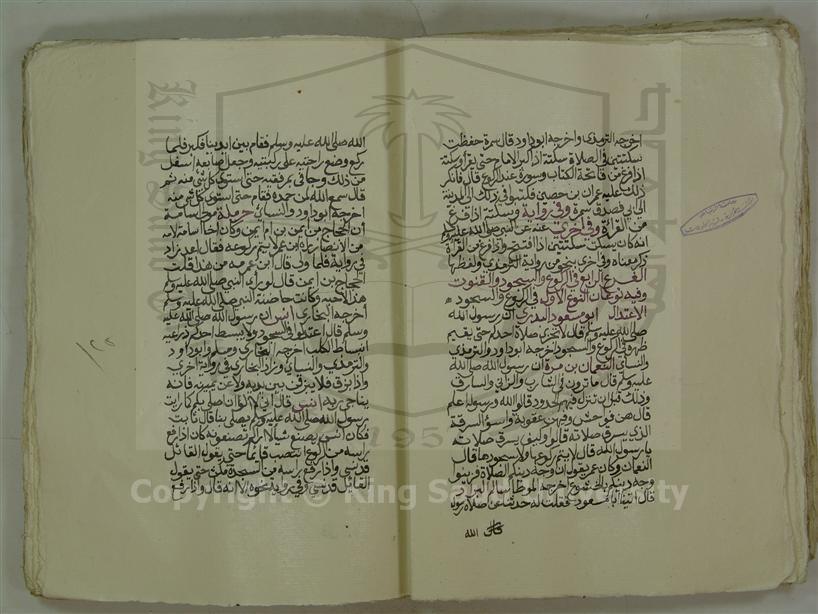 اخرجه الترمذي واخرجه ابو داود قال سمرة حفظت
سكتتين في الصلاة سكتة اذا كبر الامام حتى يقرا وسكتة
اذا فرغ من فاتحة الكتاب وسورة عند الركوع قال فانكر
ذلك عليه عمران بن حصين فكتبوا في ذلك الى المدينة
الى ابي فصدق سمرة وفي رواية وسكتة اذا فرغ
من القراة وفي اخرى عنه عن النبي صلى الله عليه وسلم
انه كان يسكت سكتتين اذا استفتح واذا فرغ من القراة
بمعناه وفي اخرى بنحو من رواية الترمذي ولفظها
الفرع الرابع في الركوع والسجود والقنوت
وفيه نوعان النوع الاول في الركوع والسجود
الاعتدال ابو مسعود البدري ان رسول الله
صلى الله عليه وسلم قال لا تجزي صلاة احدكم حتى يقيم
ظهره في الركوع والسجود اخرجه ابو داود والترمذي
والنسائي النعمان بن مرة ان رسول الله صلى الله
عليه وسلم قال ما ترون في الشارب والزاني والسارق
وذلك قبل ان تنزل فيهم الحدود قالوا الله ورسوله اعلم
قال هن فواحش وفيهن عقوبة واسوا السرقة
الذي يسرق صلاته قالوا وكيف يسرق صلاته
يا رسول الله قال لا يتم ركوعها ولا سجودها قال
النعمان وكان عمر يقول ان وجه دينكم الصلاة فزينوا
وجه دينكم بالخشوع اخرجه الموطا سالم البراد
قال اتينا ابا مسعود فقلت له حدثنا عن صلاة رسول
الله
الله صلى الله عليه وسلم فقام بين ايدينا فكبر فلما
ركع وضع راحتيه على ركبتيه وجعل اصابعه اسفل
من ذلك وجافى بمرفقيه حتى استوى كل شي منه ثم
قال سمع الله لمن حمده فقام حتى استوى كل شي منه
اخرجه ابو داود والنسائي حرملة مولى اسامة
ان الحجاج بن ايمن بن ام ايمن وكان اخا اسامة لامه
من الانصار راه ابن عمر لا يتم ركوعه فقال اعد زاد
في رواية فلما ولى قال ابن عمر من هذا قلت
الحجاج بن ايمن قال لو راى النبي صلى الله عليه وسلم
هذا لاحبه وكانت حاضنة النبي صلى الله عليه وسلم
اخرجه البخاري انس ان رسول الله صلى الله عليه
وسلم قال اعتدلوا في السجود ولا يبسط احدكم ذراعيه
انبساط الكلب اخرجه البخاري ومسلم وابو داود
والترمذي والنسائي وزاد البخاري في رواية اخرى
واذا بزق فلا يبزقن بين يديه ولا عن يمينه فانه
يناجي ربه انس قال اني لا آلو ان اصلي بكم كما رايت
رسول الله صلى الله عليه وسلم يصلي بنا قال ثابت
فكان انس يصنع شيئا لا اراكم تصنعونه كان اذا رفع
راسه من الركوع انتصب قائما حتى يقول القائل
قد نسي واذا رفع راسه من السجدة مكث حتى يقول
القائل قد نسي وفي رواية نحوه الا انه قال واذا رفع
Copyright © King Saud University
1957